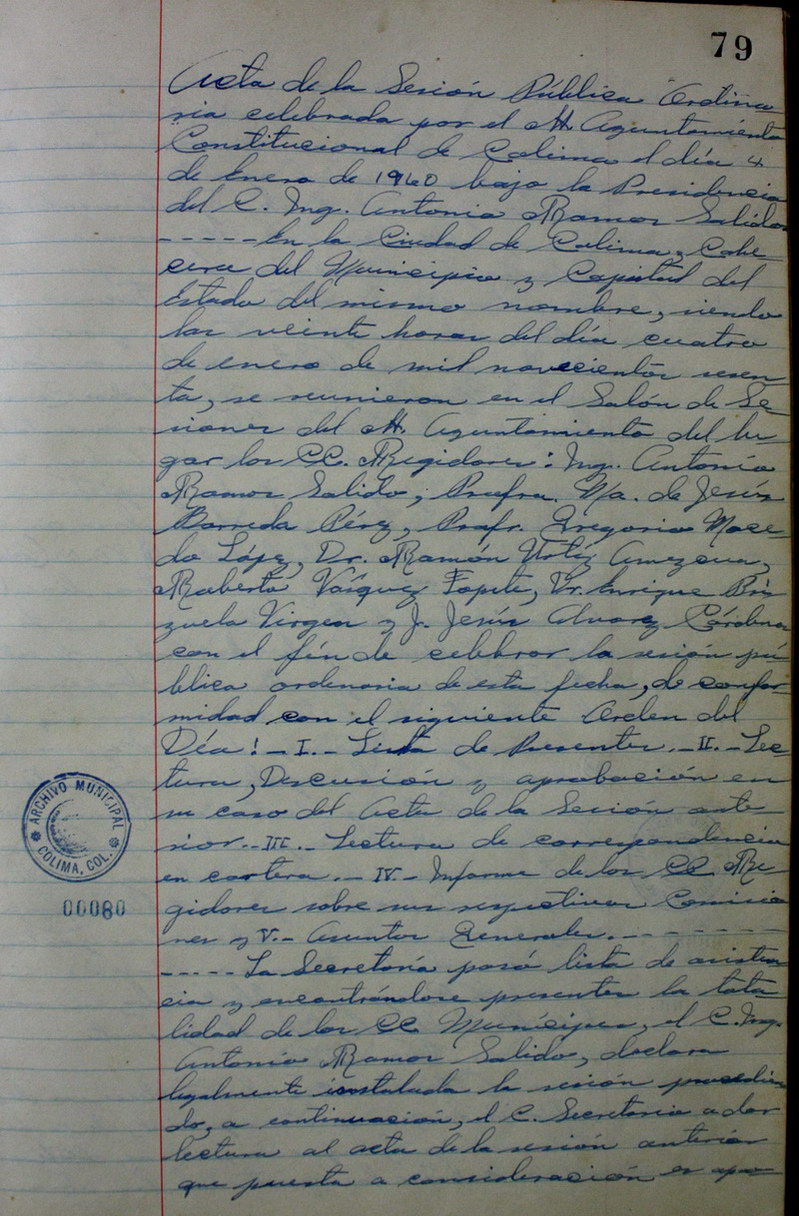 79
Acta de la Sesión Pública Ordina
ria celebrada por el H. Ayuntamiento
Constitucional de Colima el día 4
de Enero de 1960 bajo la Presidencia
del C. Ing. Antonio Ramos Salido
-----En la Ciudad de Colima, Cabe
cera del Municipio y Capital del
Estado del mismo nombre, siendo
las veinte horas del día cuatro
de enero de mil novecientos sesen
ta, se reunieron en el Salón de Se
siones del H. Ayuntamiento del lu
gar los CC. Regidores: Ing. Antonio
Ramos Salido, Profra. Ma. de Jesús
Barreda Pérez, Profr. Gregorio Mace
do López, Dr. Ramón Ortiz Amezcua,
Roberto Vázquez Topete, Dr. Enrique Bri
zuela Virgen y J. Jesús Alvarez Cárdenas
con el fín de celebrar la sesión pú
blica ordinaria de esta fecha, de confor
midad con el siguiente Orden del
Día:- I.- Lista de Presentes.- II.- Lec
tura, Discusión y aprobación en
su caso del Acta de la Sesión ante
rior.- III.- Lectura de correspondencia
en cartera.- IV.- Informe de los CC. Re
gidores sobre sus respectivas Comisio
nes y V.- Asuntos Generales.--------
-----La Secretaría pasó lista de asisten
cia y encontrándose presentes la tota
lidad de los CC Munícipes, el C. Ing.
Antonio Ramos Salido, declara
legalmente instalada la sesión procedien
do, a continuación, el C. Secretario a dar
lectura al acta de la sesión anterior
que puesta a consideración es apro
ARCHIVO MUNICIPAL
COLIMA, COL.
00080